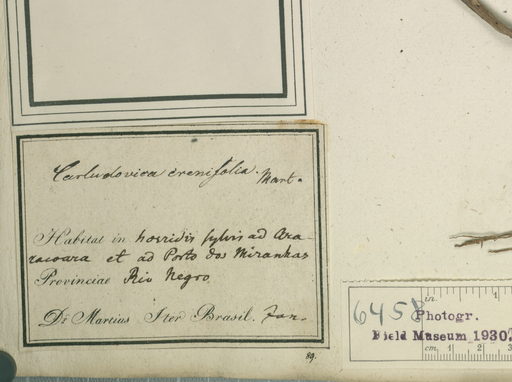 Carludovica crenifolia. Mart.
Habitat in horridis sylvis ad Ara-
racoara et ad Porto dos Miranhas
Provinciae Rio Negro.
Dr Martius Iter Brasil. Jan.
89.
6458
in. 1
Photogr.
Field Museum 1930.
cm. 1 2 3